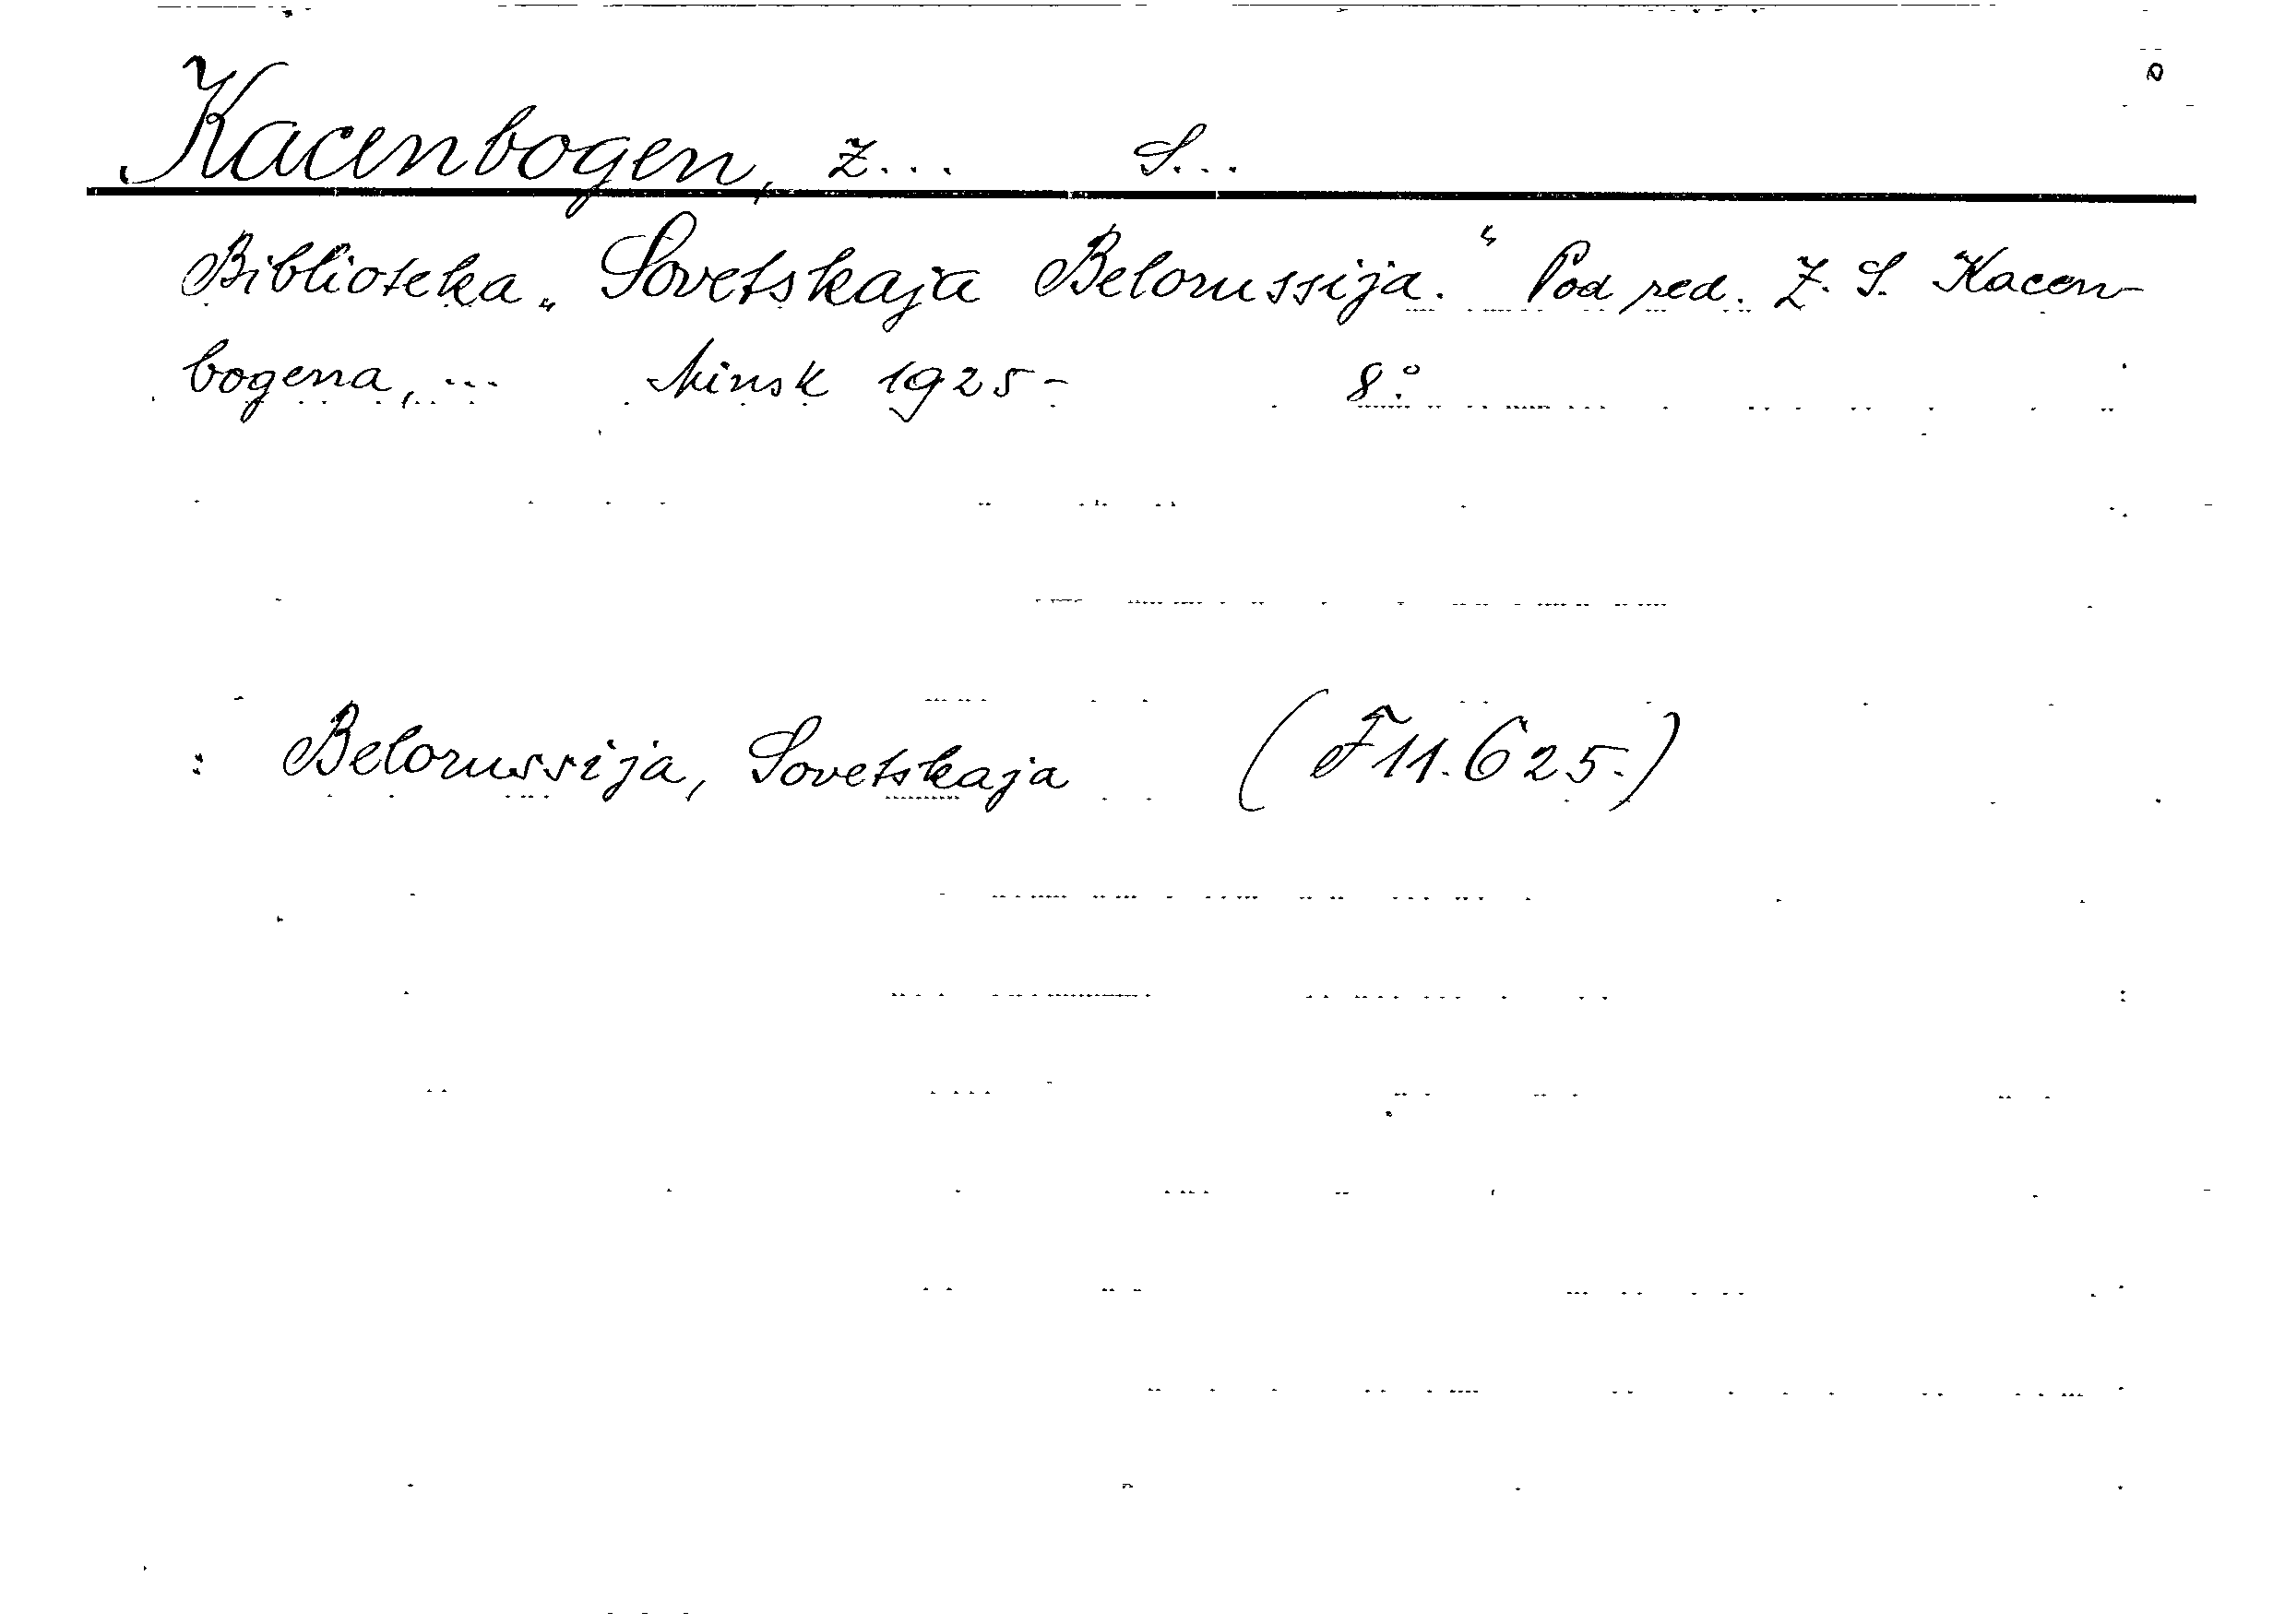 Kacenbogen, Z... S...
Biblioteka „Sovetskaja Belorussija.“ Pod red. Z. S. Kacen-
bogena, ... Minsk 1925- 8°.
: Belorussija, Sovetskaja (F 11.625.)